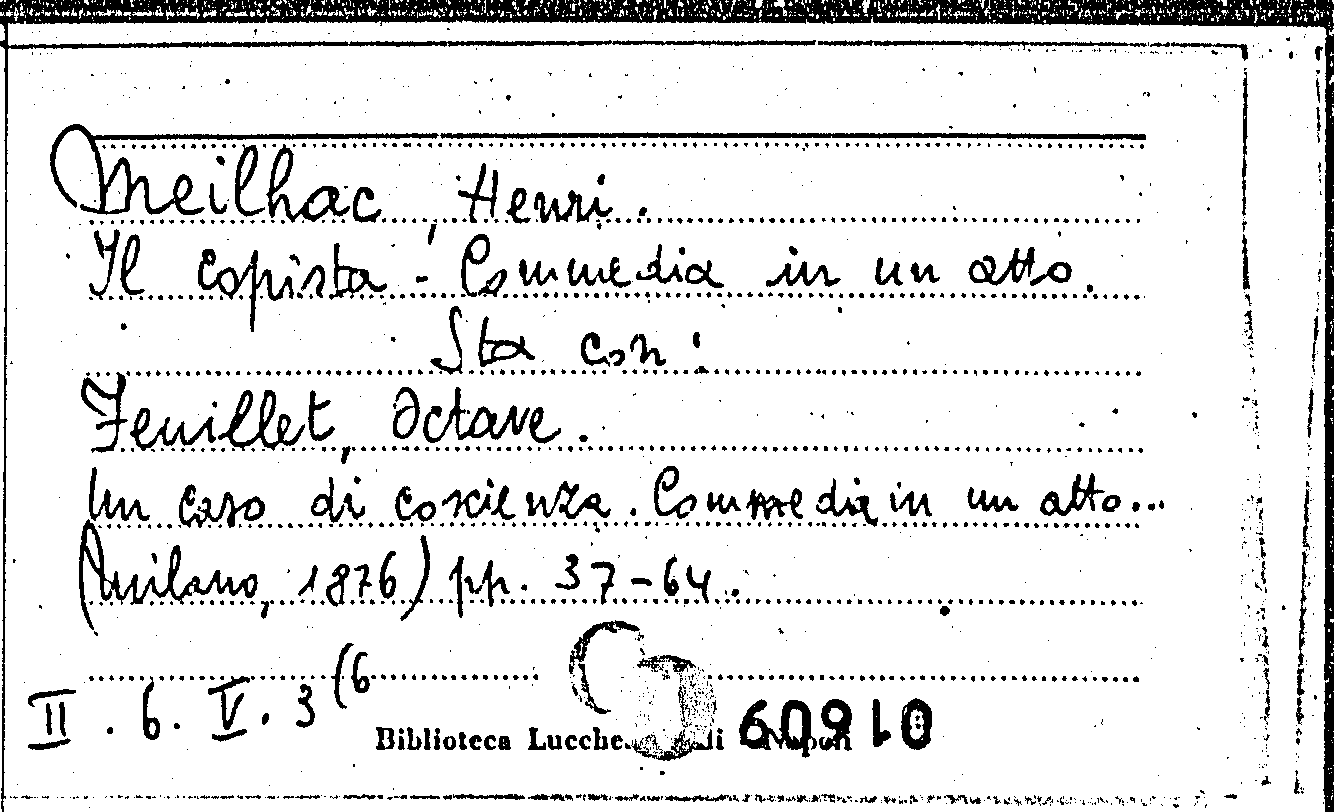 Meilhac, Henri.
Il copista - Commedia in un atto.
Sta con:
Feuillet, Octave.
Un caso di coscienza. Commedia in un atto...
(Milano, 1876) pp. 37-64.
II. 6. V. 3 (6
Biblioteca Lucchesi Napoli